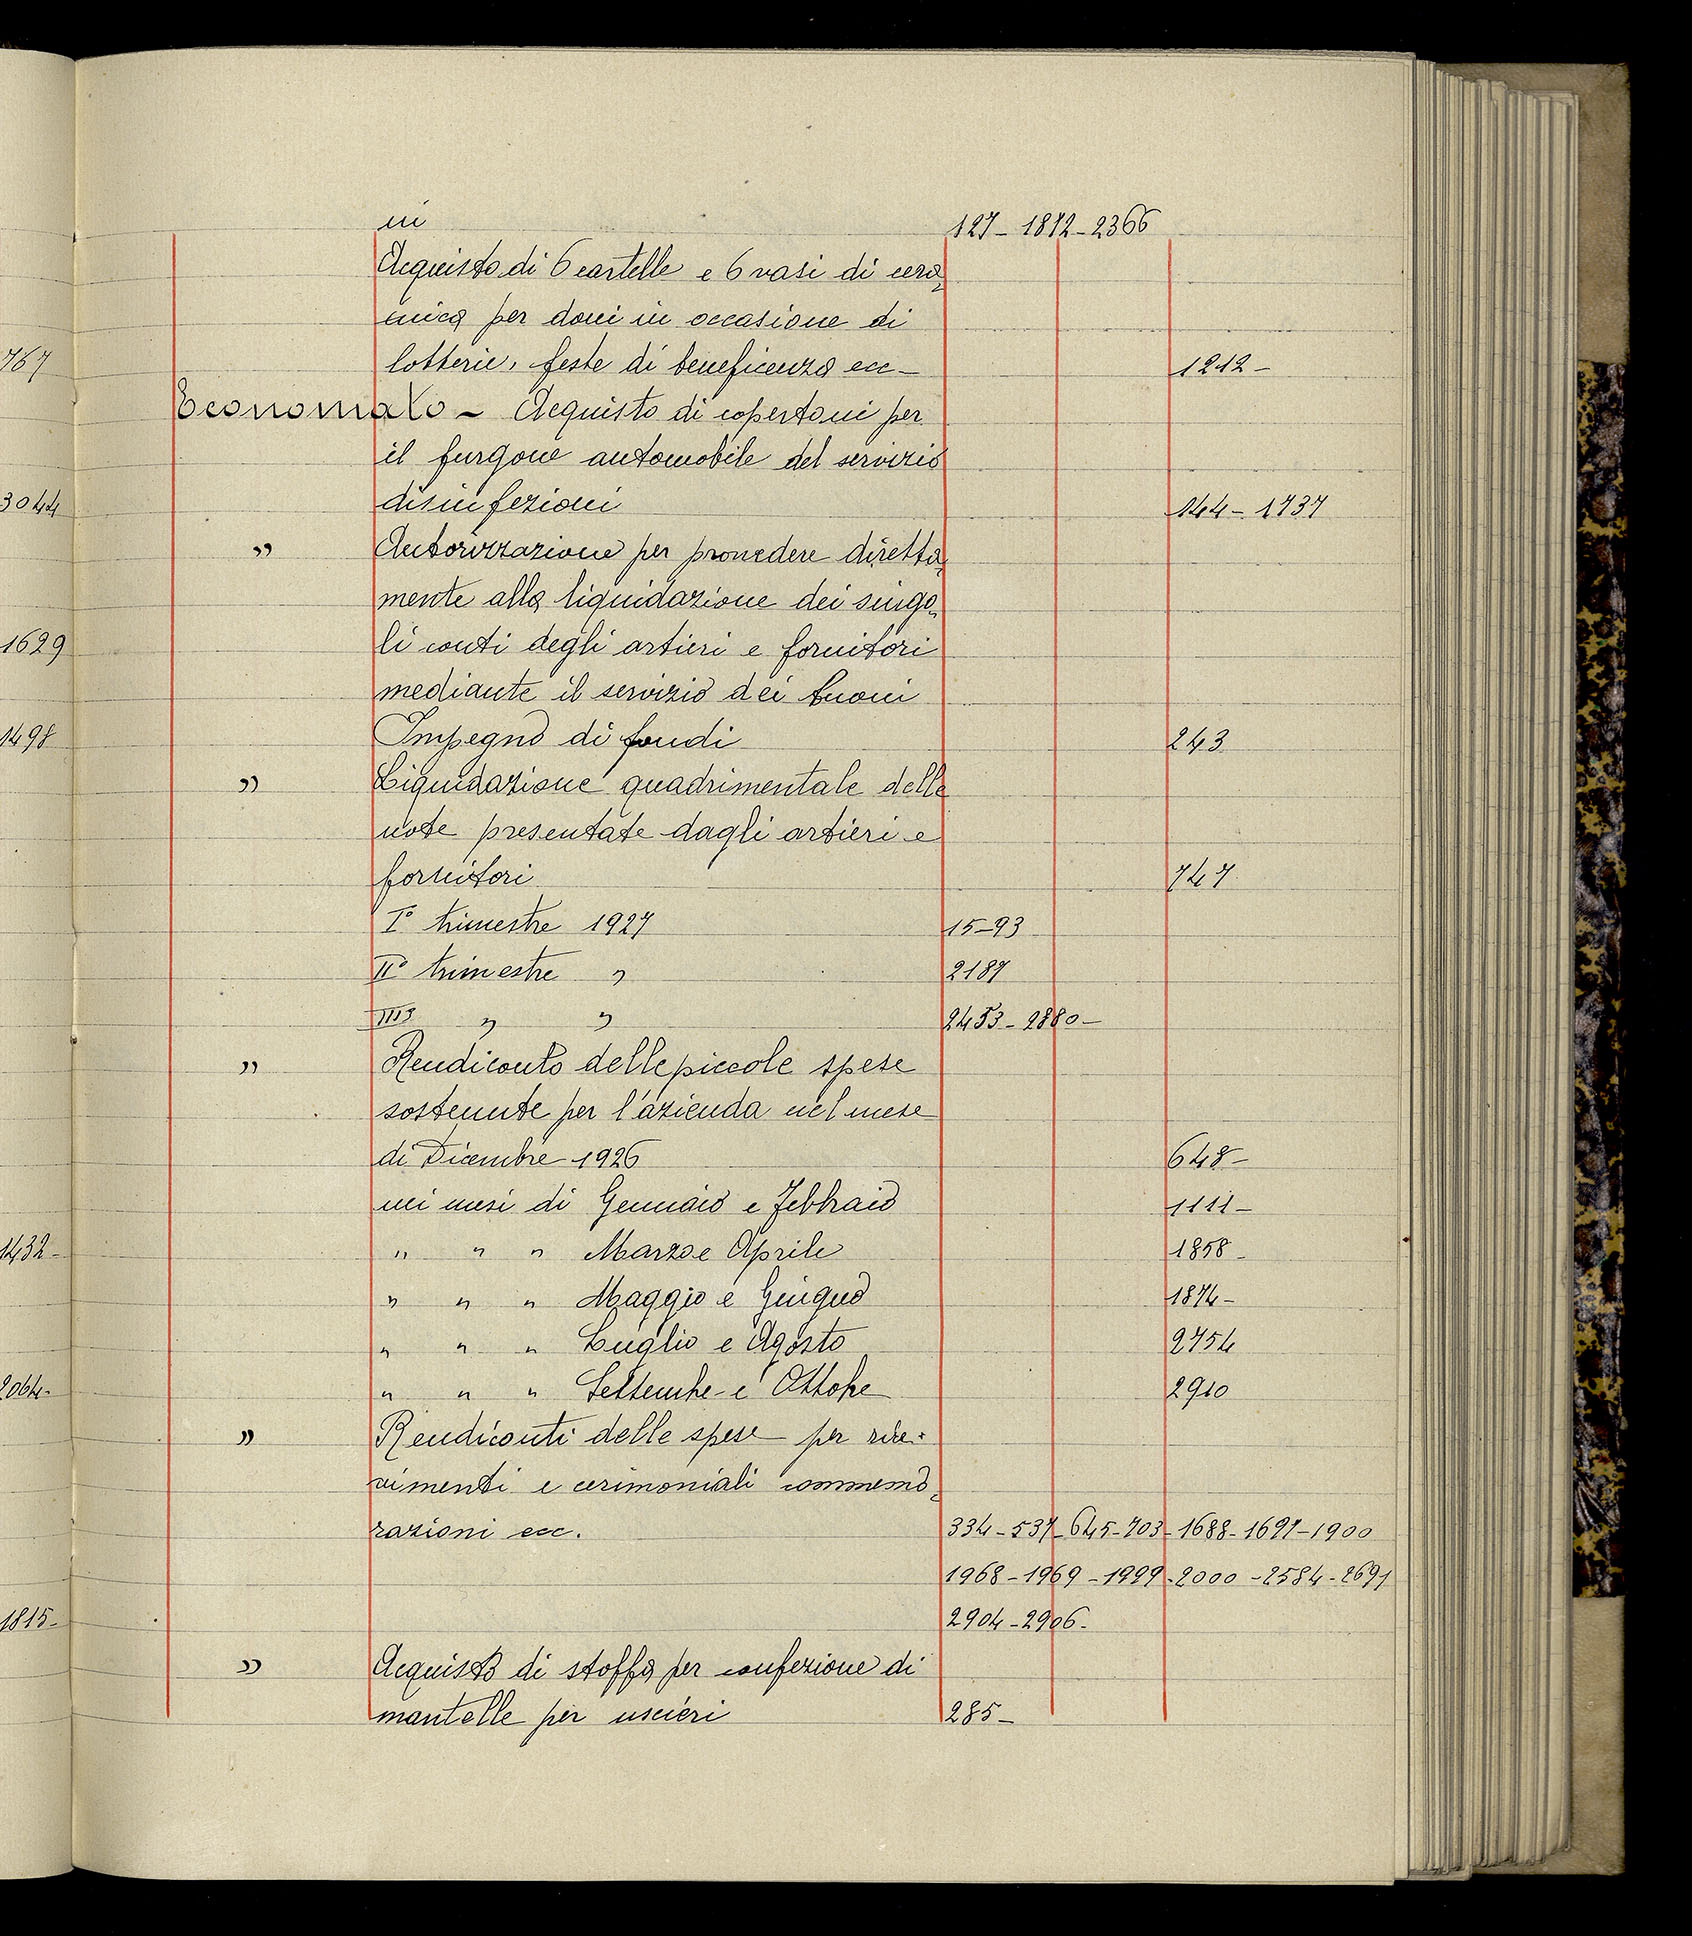 ni 127 - 1872 - 2366
Acquisto di 6 cartelle e 6 vasi di cera-
mica per doni in occasione di
767 lotterie, feste di beneficenza ecc - 1212 -
Economato - Acquisto di copertoni per
il furgone automobile del servizio
3044 disinfezioni 144 - 1737
" Autorizzazione per provvedere diretta-
mente alla liquidazione dei singo-
1629 li conti degli artieri e fornitori
mediante il servizio dei buoni
1498 Impegno di fondi 243
" Liquidazione quadrimentale delle
note presentate dagli artieri e
fornitori 747
I° trimestre 1927 15-93
II° trimestre " 2187
III° " " 2453 - 2880 -
" Rendiconto delle piccole spese
sostenute per l'azienda nel mese
di Dicembre 1926 648 -
nei mesi di Gennaio e Febbraio 1111 -
1432 - " " " Marzo e Aprile 1858 -
" " " Maggio e Giugno 1874 -
" " " Luglio e Agosto 2754
2064 - " " " Settembre e Ottobre 2910
" Rendiconti delle spese per rice-
vimenti e cerimoniali commemo-
razioni ecc. 334 - 537 - 645 - 703 - 1688 - 1697 - 1900
1968 - 1969 - 1999 - 2000 - 2584 - 2691
1815 - 2904 - 2906 -
" Acquisto di stoffa per confezione di
mantelle per uscieri 285 -